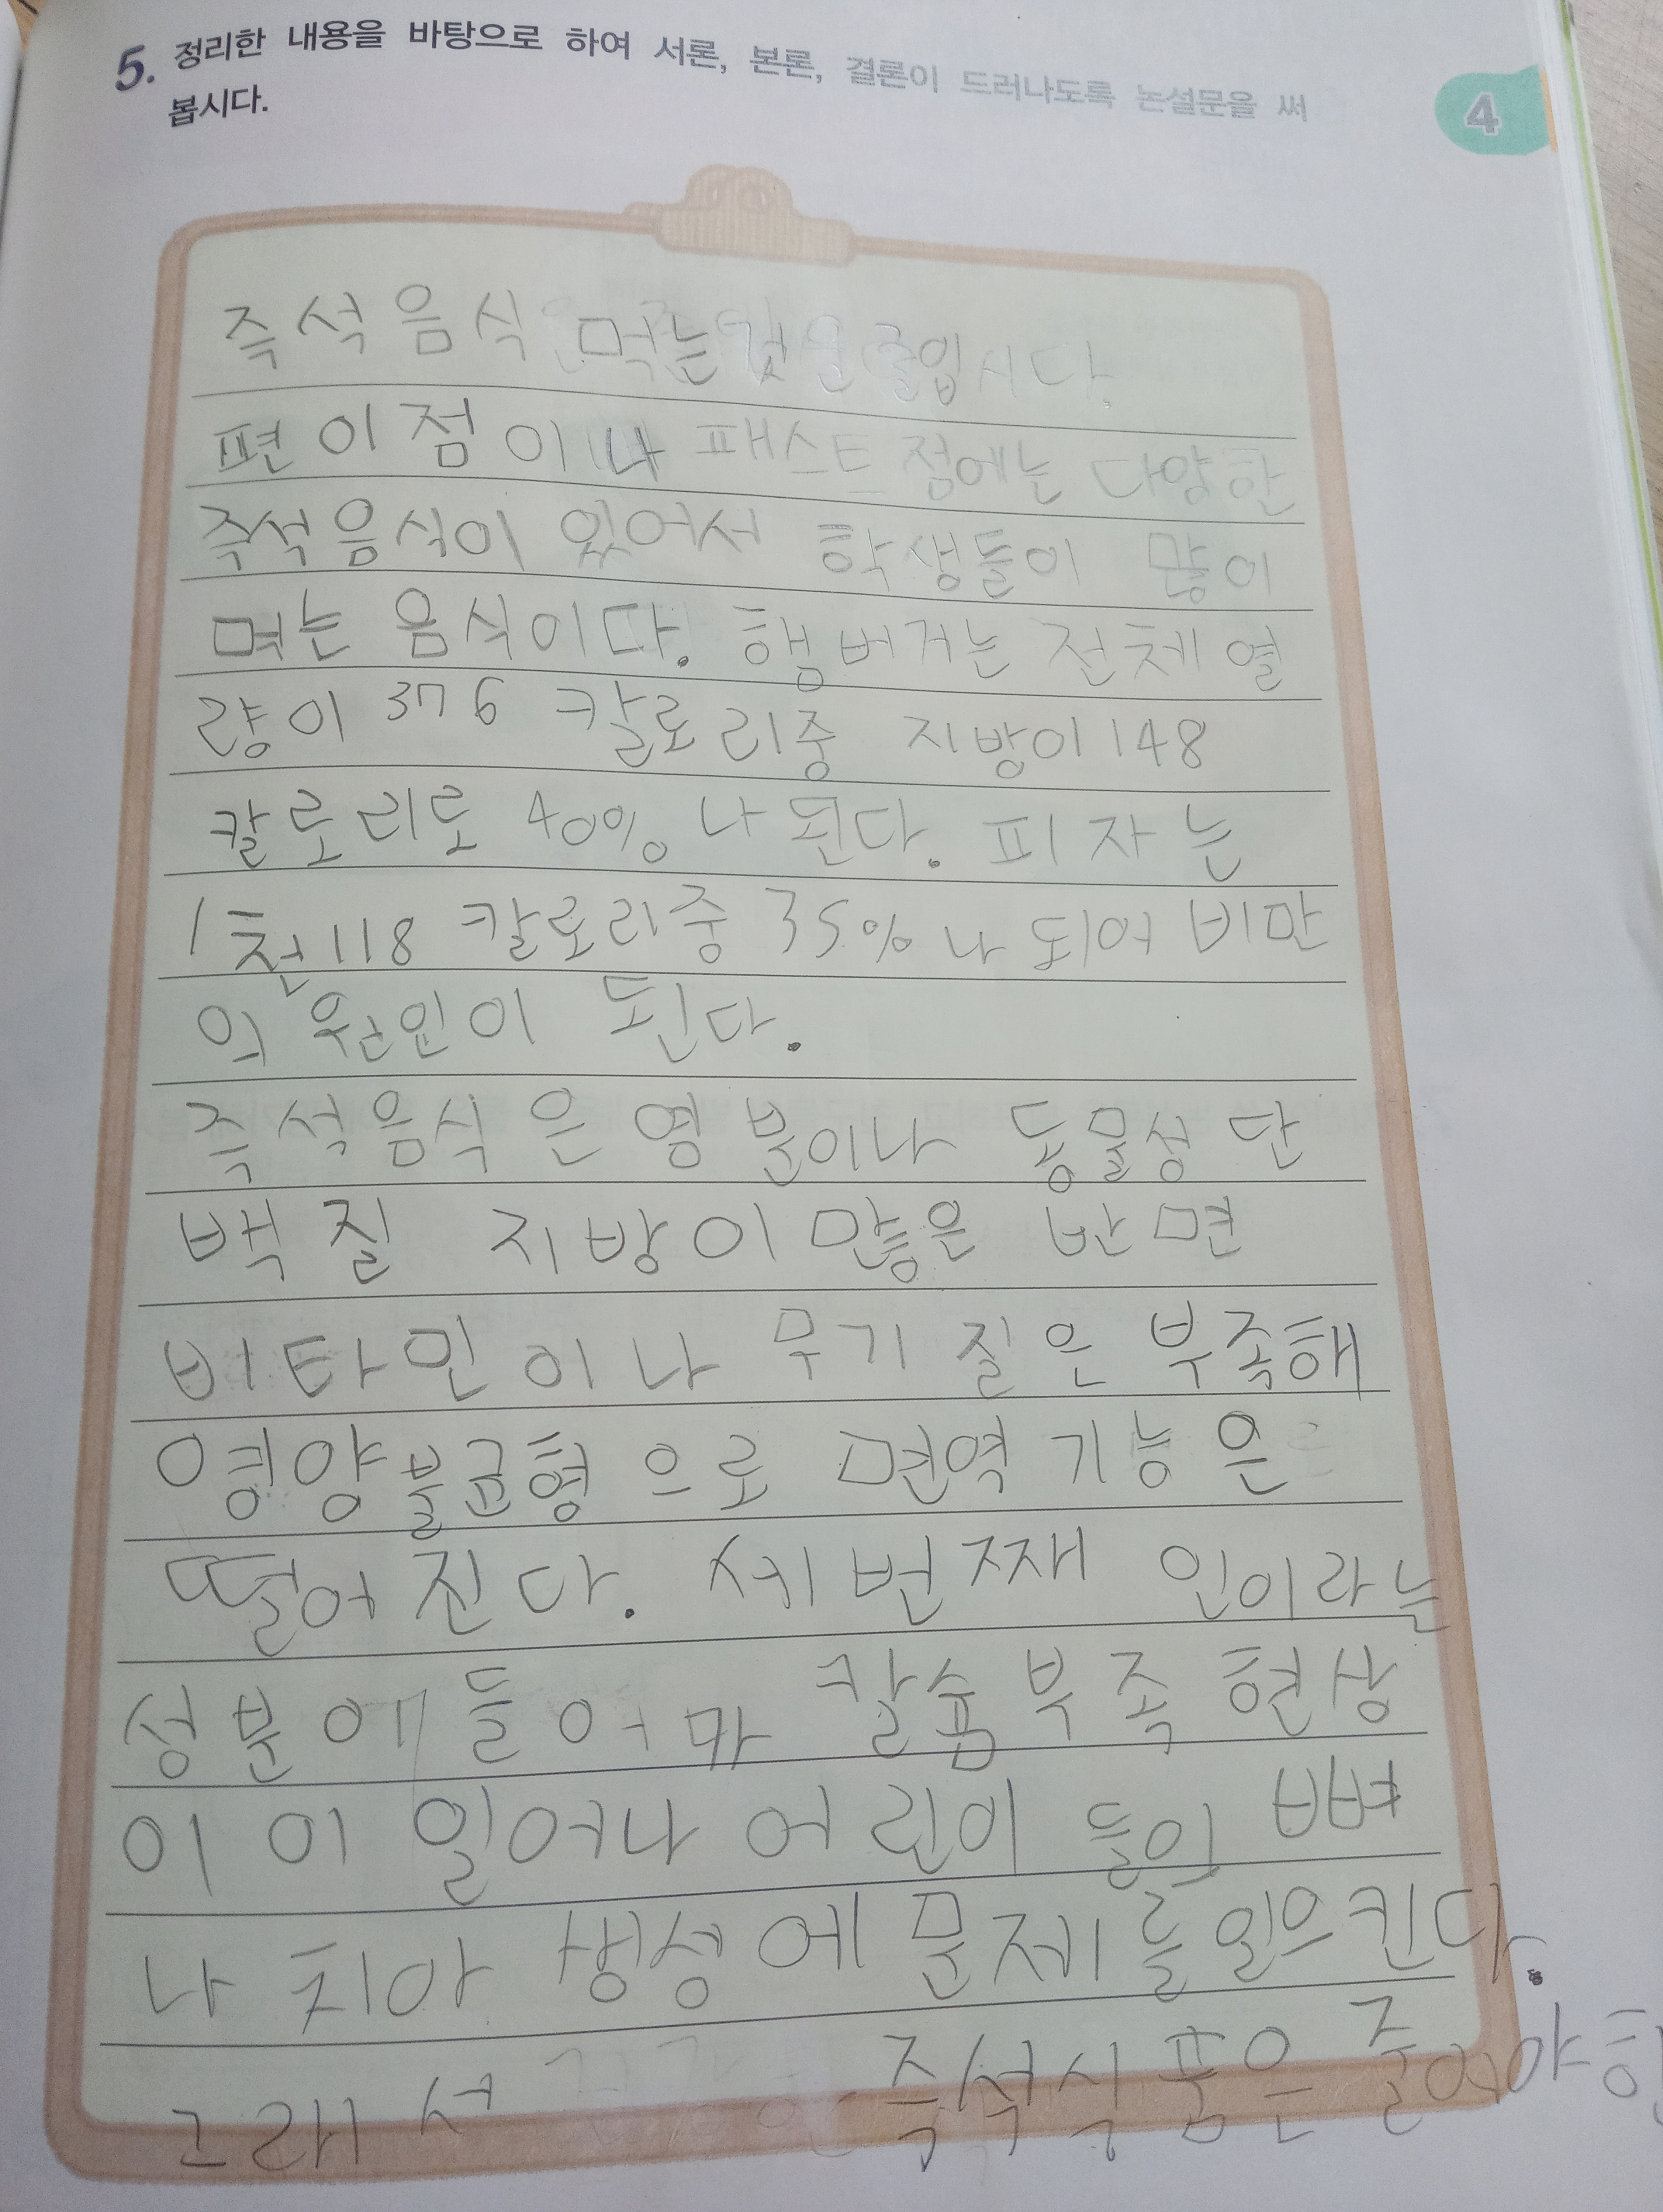 5. 정리한 내용을 바탕으로 하여 서론, 본론, 결론이 드러나도록 논설문을 써
봅시다.
4
즉석음식 먹는것을 줄입시다.
편이점이나 패스트 점에는 다양한
즉석음식이 있어서 학생들이 많이
먹는 음식이다. 햄버거는 전체 열
량이 376 칼로리중 지방이 148
칼로리로 40%나 된다. 피자는
1천118 칼로리중 35%나 되어 비만
의 원인이 된다.
즉석음식은 염분이나 동물성 단
백질 지방이 많은 반면
비타민이나 무기질은 부족해
영양불균형으로 면역 기능은
떨어진다. 세번째 인이라는
성분에 들어가 칼슘부족현상
이 이 일어나 어린이들의 뼈
나 치아 생성에 문제를일으킨다.
그래서 즉석식품은 줄여야한